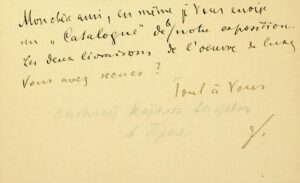 Mon cher ami, en même j. Vous envoie
un "Catalogue" de notre exposition.
Les deux livraisons, de l'oeuvre de
Vous avez reçues?
Tout à Vous
в Праге